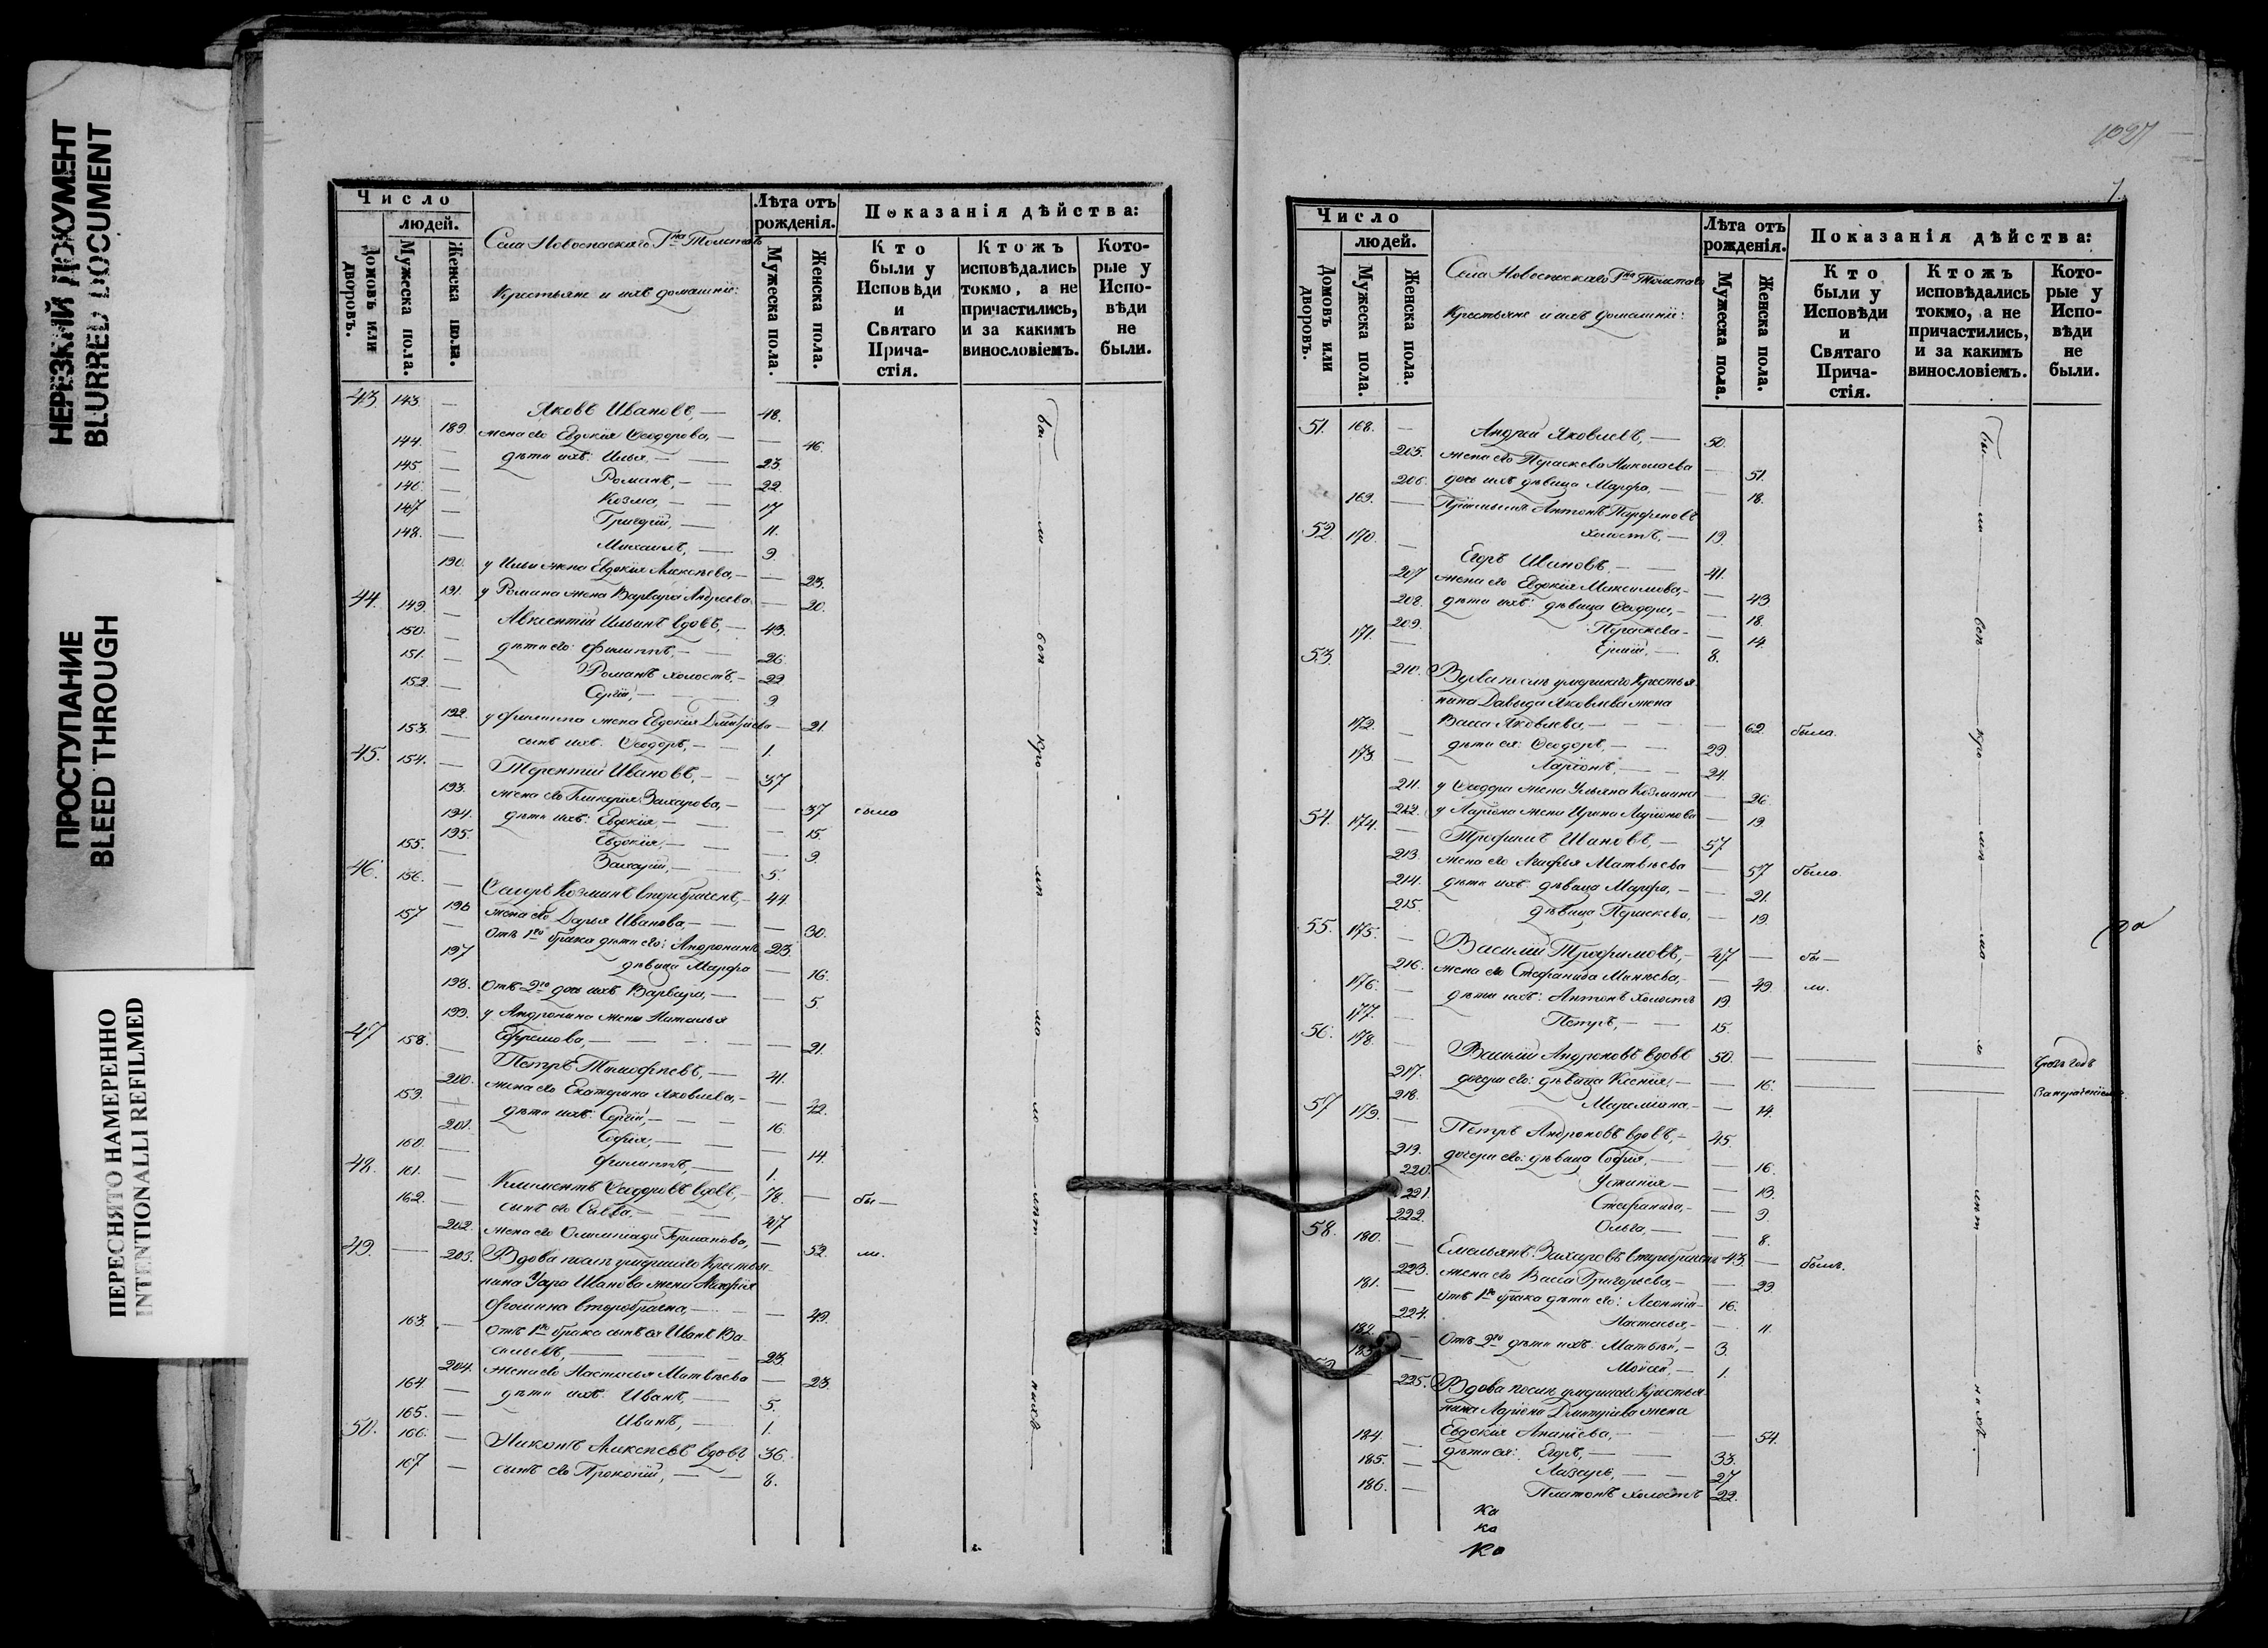 НЕРЕЗКИЙ ДОКУМЕНТ
BLURRED DOCUMENT
ПРОСТУПАНИЕ
BLEED THROUGH
ПЕРЕСНЯТО НАМЕРЕННО
INTENTIONALLI REFILMED
Число
людей.
Домовъ или дворовъ.
Мужеска пола.
Женска пола.
Села Новоспаскаго Гна Толстова
Крестьяне и ихъ домашніе:
Лѣта отъ рожденія.
Мужеска пола.
Женска пола.
Показанія дѣйства:
Кто были у Исповѣди и Святаго Причастія.
Ктожъ исповѣдались токмо, а не причастились, и за какимъ винословіемъ.
Которые у Исповѣди не были.
43. 143. — Яковъ Ивановъ, — 48.
189. жена его Евдокія Ѳеодорова, — 46.
144. — дѣти ихъ: Илья, — 23.
145. — Романъ, — 22.
146. — Козма, — 17
147 — Григорій, — 11.
148. — Михаилъ, — 9.
190. у Ильи жена Евдокія Алексѣева, — 23.
191. у Романа жена Варвара Андреева — 20.
44. 149. — Авксентій Ильинъ вдовъ, — 43.
150. — дѣти его: Филиппъ, — 26.
151. — Романъ холостъ, — 22
152. — Сергій, — 9
192. у Филиппа жена Евдокія Дмитріева — 21.
153. — сынъ ихъ: Ѳеодоръ, — 1.
45. 154. — Терентій Ивановъ, — 37
193. жена его Гликерія Захарова, — 37 была
194. дѣти ихъ: Евдокія, — 15.
195. Евдокія, — 9.
155. — Захарій, — 5.
46. 156. — Козминъ второбраченъ, — 44.
196 жена его Дарья Иванова, — 30.
157 — Отъ 1го брака дѣти его: Андронинъ 23.
197 дѣвица Марфа — 16.
198. Отъ 2го дочь ихъ Варвара, — 5.
199. у Андронина жена Наталья
Ефремова, — 21.
47 158. — Петръ Тимофѣевъ, — 41.
200. жена его Екатерина Яковлева, — 42.
159. — дѣти ихъ: Сергій, — 16.
201. Софія, — 14.
160. — Филиппъ, — 1.
48. 161. — Климентъ Ѳеодоровъ вдовъ, — 78. — бы —
162. — сынъ его Савва, — 47
202. жена его Олимпіада Германова, — 52. ли.
49. — 203. Вдова послѣ умершаго Крестья-
нина Иванова жена
Фомина второбрачна, — 49.
163. — Отъ 1го брака сынъ ея Иванъ Ва-
сильевъ, — 23
204. жена его Настасья Матвѣева — 23.
164. — дѣти ихъ: Иванъ, — 5.
165. — Иванъ, — 1.
50. 166. — Никонъ Алексѣевъ вдовъ 36.
167 — сынъ его Прокопій, — 8.
1027
7.
Число
людей.
Домовъ или дворовъ.
Мужеска пола.
Женска пола.
Села Новоспаскаго Гна Толстова
Крестьяне и ихъ домашніе:
Лѣта отъ рожденія.
Мужеска пола.
Женска пола.
Показанія дѣйства:
Кто были у Исповѣди и Святаго Причастія.
Ктожъ исповѣдались токмо, а не причастились, и за какимъ винословіемъ.
Которые у Исповѣди не были.
51. 168. — Андрей Яковлевъ, — 50.
205. жена его Параскева Николаева — 51.
206. дочь ихъ дѣвица Марфа, — 18.
169. — Антонъ Парфеновъ
холостъ, — 19.
52. 170. — Егоръ Ивановъ, — 41.
207 жена его Евдокія Максимова, — 43
208. дѣти ихъ: дѣвица Ѳеодора, — 18.
209. Параскева — 14.
171. — 8.
53. 210. Вдова послѣ умершаго Крестья-
нина Давыда Яковлева жена
Васса Яковлева, — 62. была.
172. — дѣти ея: Ѳеодоръ, — 29.
173. — Ларіонъ, — 24.
211. у Ѳеодора жена Ульяна Козмина — 26.
212. у Ларіона жена Ирина Ларіонова — 19.
54. 174. — Трофимъ Ивановъ, — 57
213. жена его Агафья Матвѣева — 57 была.
214. дѣти ихъ: дѣвица Марфа, — 21.
215. дѣвица Параскева, — 19.
55. 175. — Василій Трофимовъ, — 47 — бы —
216. жена его Стефанида Минѣева, — 49. ли.
176. — дѣти ихъ: Антонъ холостъ 19.
177. — Петръ, — 15.
56. 178. — Василій Андроновъ вдовъ 50. —
217. дочери его: дѣвица Ксенія, — 16.
218. Мареміана, — 14.
57 179. — Петръ Андроновъ вдовъ, — 45.
219. дочери его: дѣвица Софія, — 16.
220. Устинія — 13.
221. Стефанида, — 9.
222. Ольга, — 8.
58. 180. — Емельянъ Захаровъ второбраченъ 43. — былъ.
223. жена его Васса Григорьева, — 29.
181. — Отъ 1го брака дѣти его: Леонтій — 16.
224. Настасья, — 11.
182. — Отъ 2го дѣти ихъ: Матвѣй, — 3.
183. — Мойсей, — 1.
59. 225. Вдова послѣ умершаго Крестья-
нина Ларіона Дмитріева жена
Евдокія Ананіева, — 54.
184. — дѣти ея: Егоръ, — 33.
185. — Лазарь, — 27
186. — Платонъ холостъ 22.
ка
ка
ка